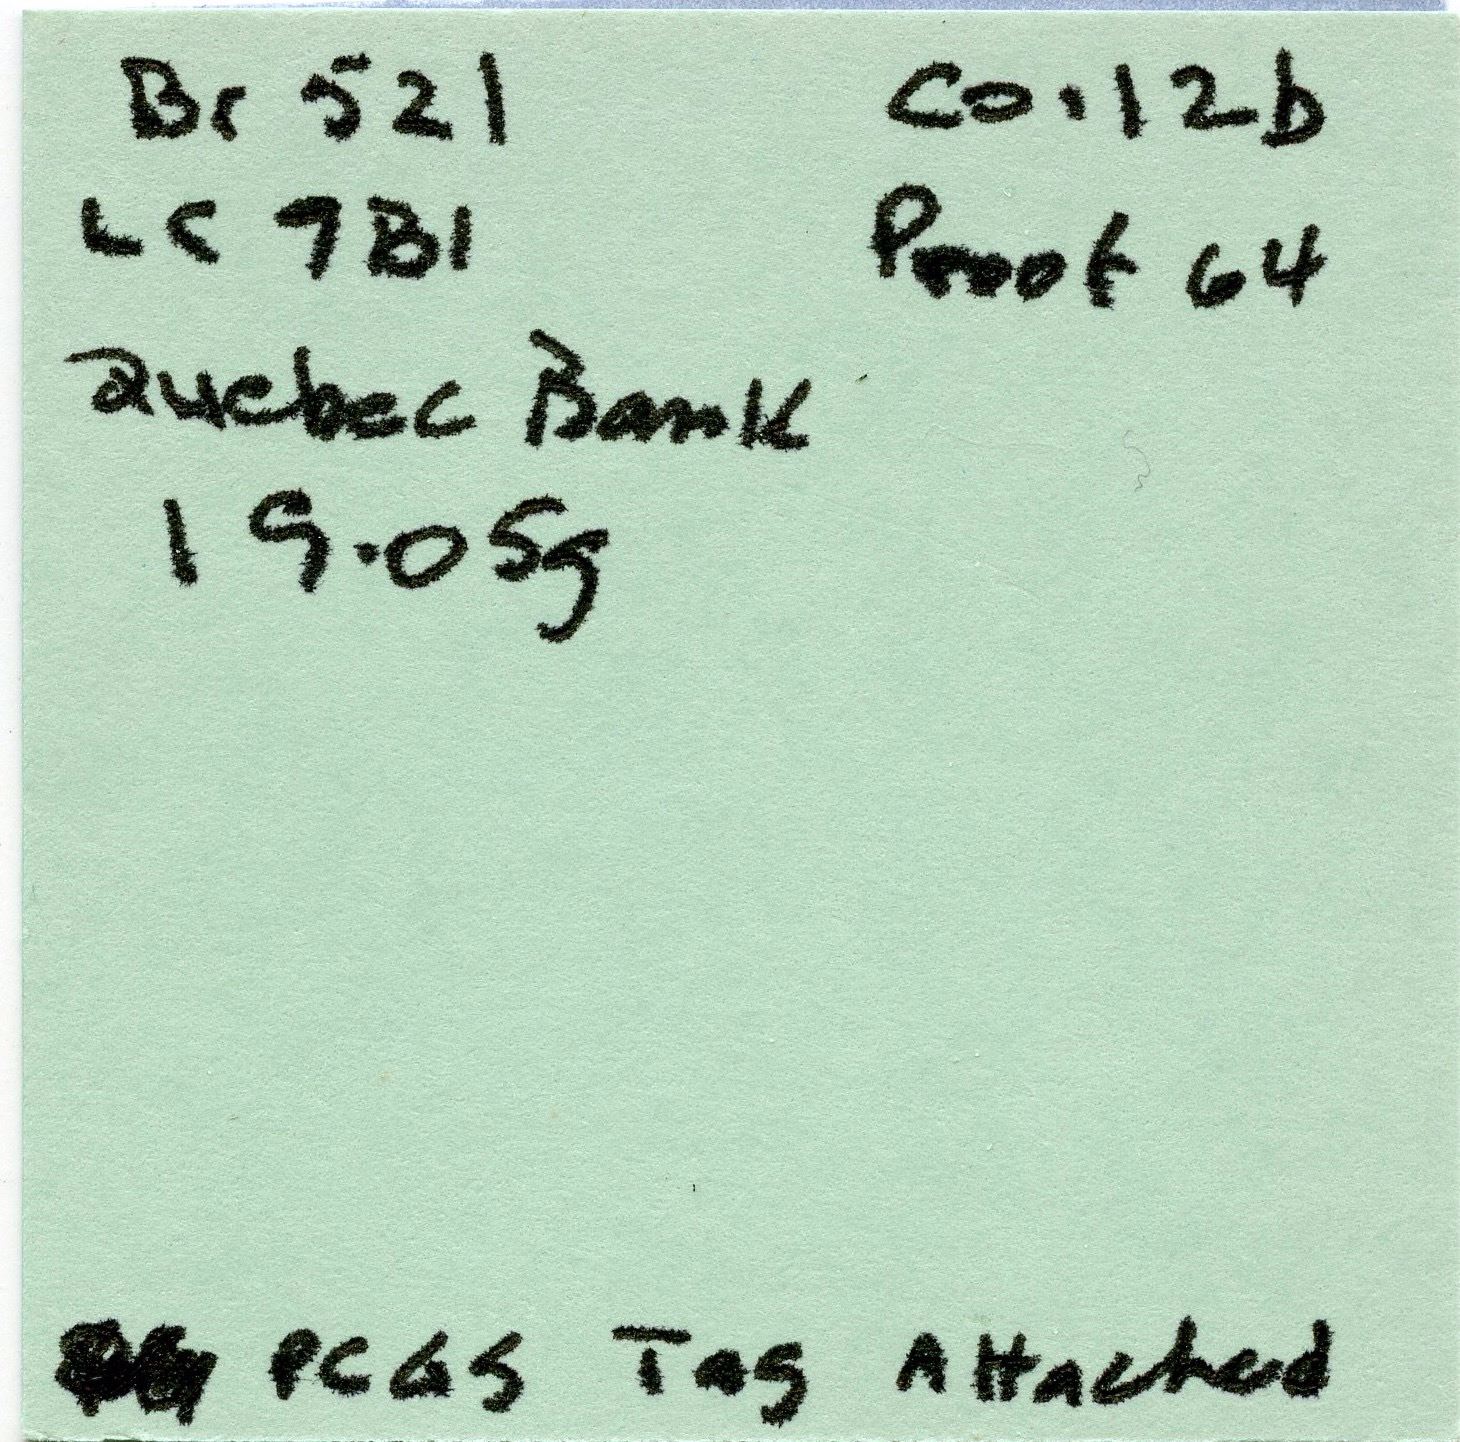 Br 521 Co.12b
LC 9B1 Proof 64
Quebec Bank
19.05g
PCGS Tag Attached